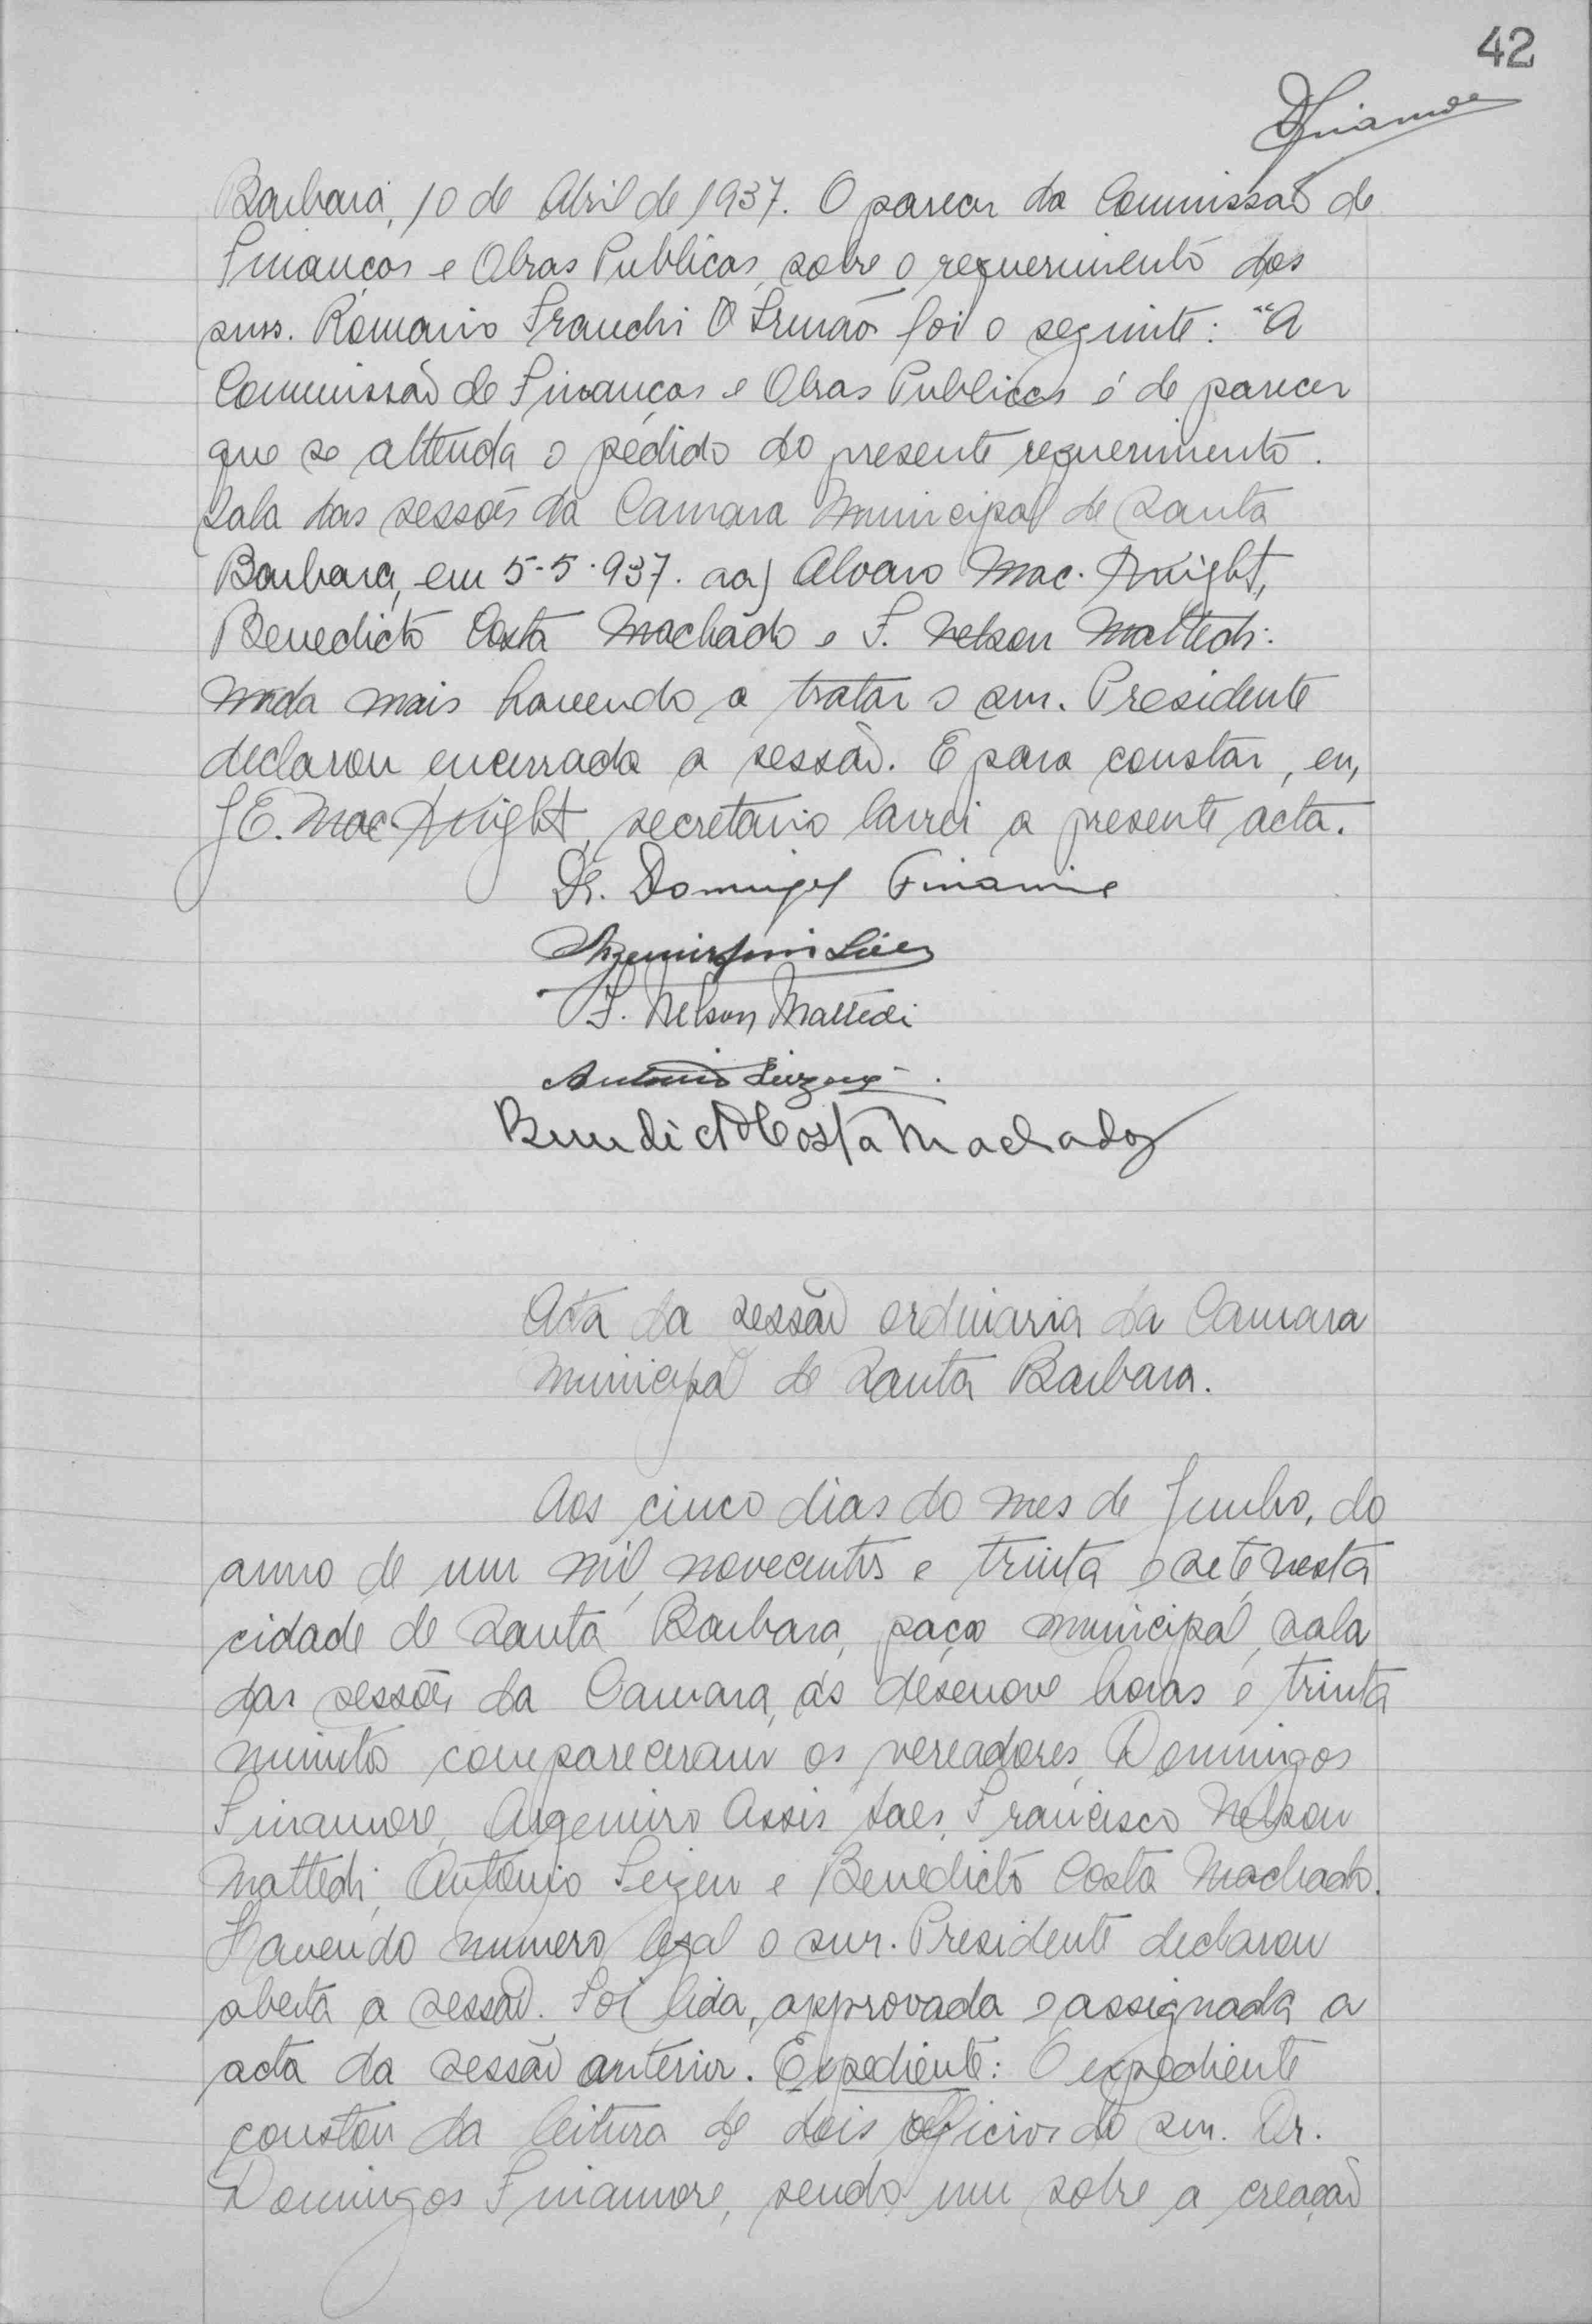 42
DFinamore
Barbara, 10 de Abril de 1937. O parecer da Commissão de
Finanças e Obras Publicas, sobre o requerimento dos
snrs. Romano Franchi & Irmão foi o seguinte: "A
Commissão de Finanças e Obras Publicas é de parecer
que se attenda o pedido do presente requerimento.
Sala das sessões da Camara Municipal de Santa
Barbara, em 5-5-937. aa) Alvaro Mac. Knight,
Benedicto Costa Machado e F. Nelson Mattedi.
Nada mais havendo a tratar o snr. Presidente
declarou encerrada a sessão. E para constar, eu,
J E. Mac Knight, secretario lavrei a presente acta.
Dr. Domingos Finamore
Argemiro Assis Sáes
F. Nelson Mattedi
Antonio
Benedicto Costa Machado
Acta da sessão ordinaria da Camara
Municipal de Santa Barbara.
Aos cinco dias do mes de Junho, do
anno de um mil novecentos e trinta e sete, nesta
cidade de Santa Barbara, paço municipal, sala
das sessões da Camara, ás desenove horas e trinta
minutos compareceram os vereadores, Domingos
Finamore, Argemiro Assis Saes, Francisco Nelson
Mattedi, Antonio e Benedicto Costa Machado.
Havendo numero legal o snr. Presidente declarou
aberta a sessão. Foi lida, approvada e assignada a
acta da sessão anterior. Expediente: O expediente
constou da leitura de dois officios do snr. Dr.
Domingos Finamore, sendo um sobre a creação